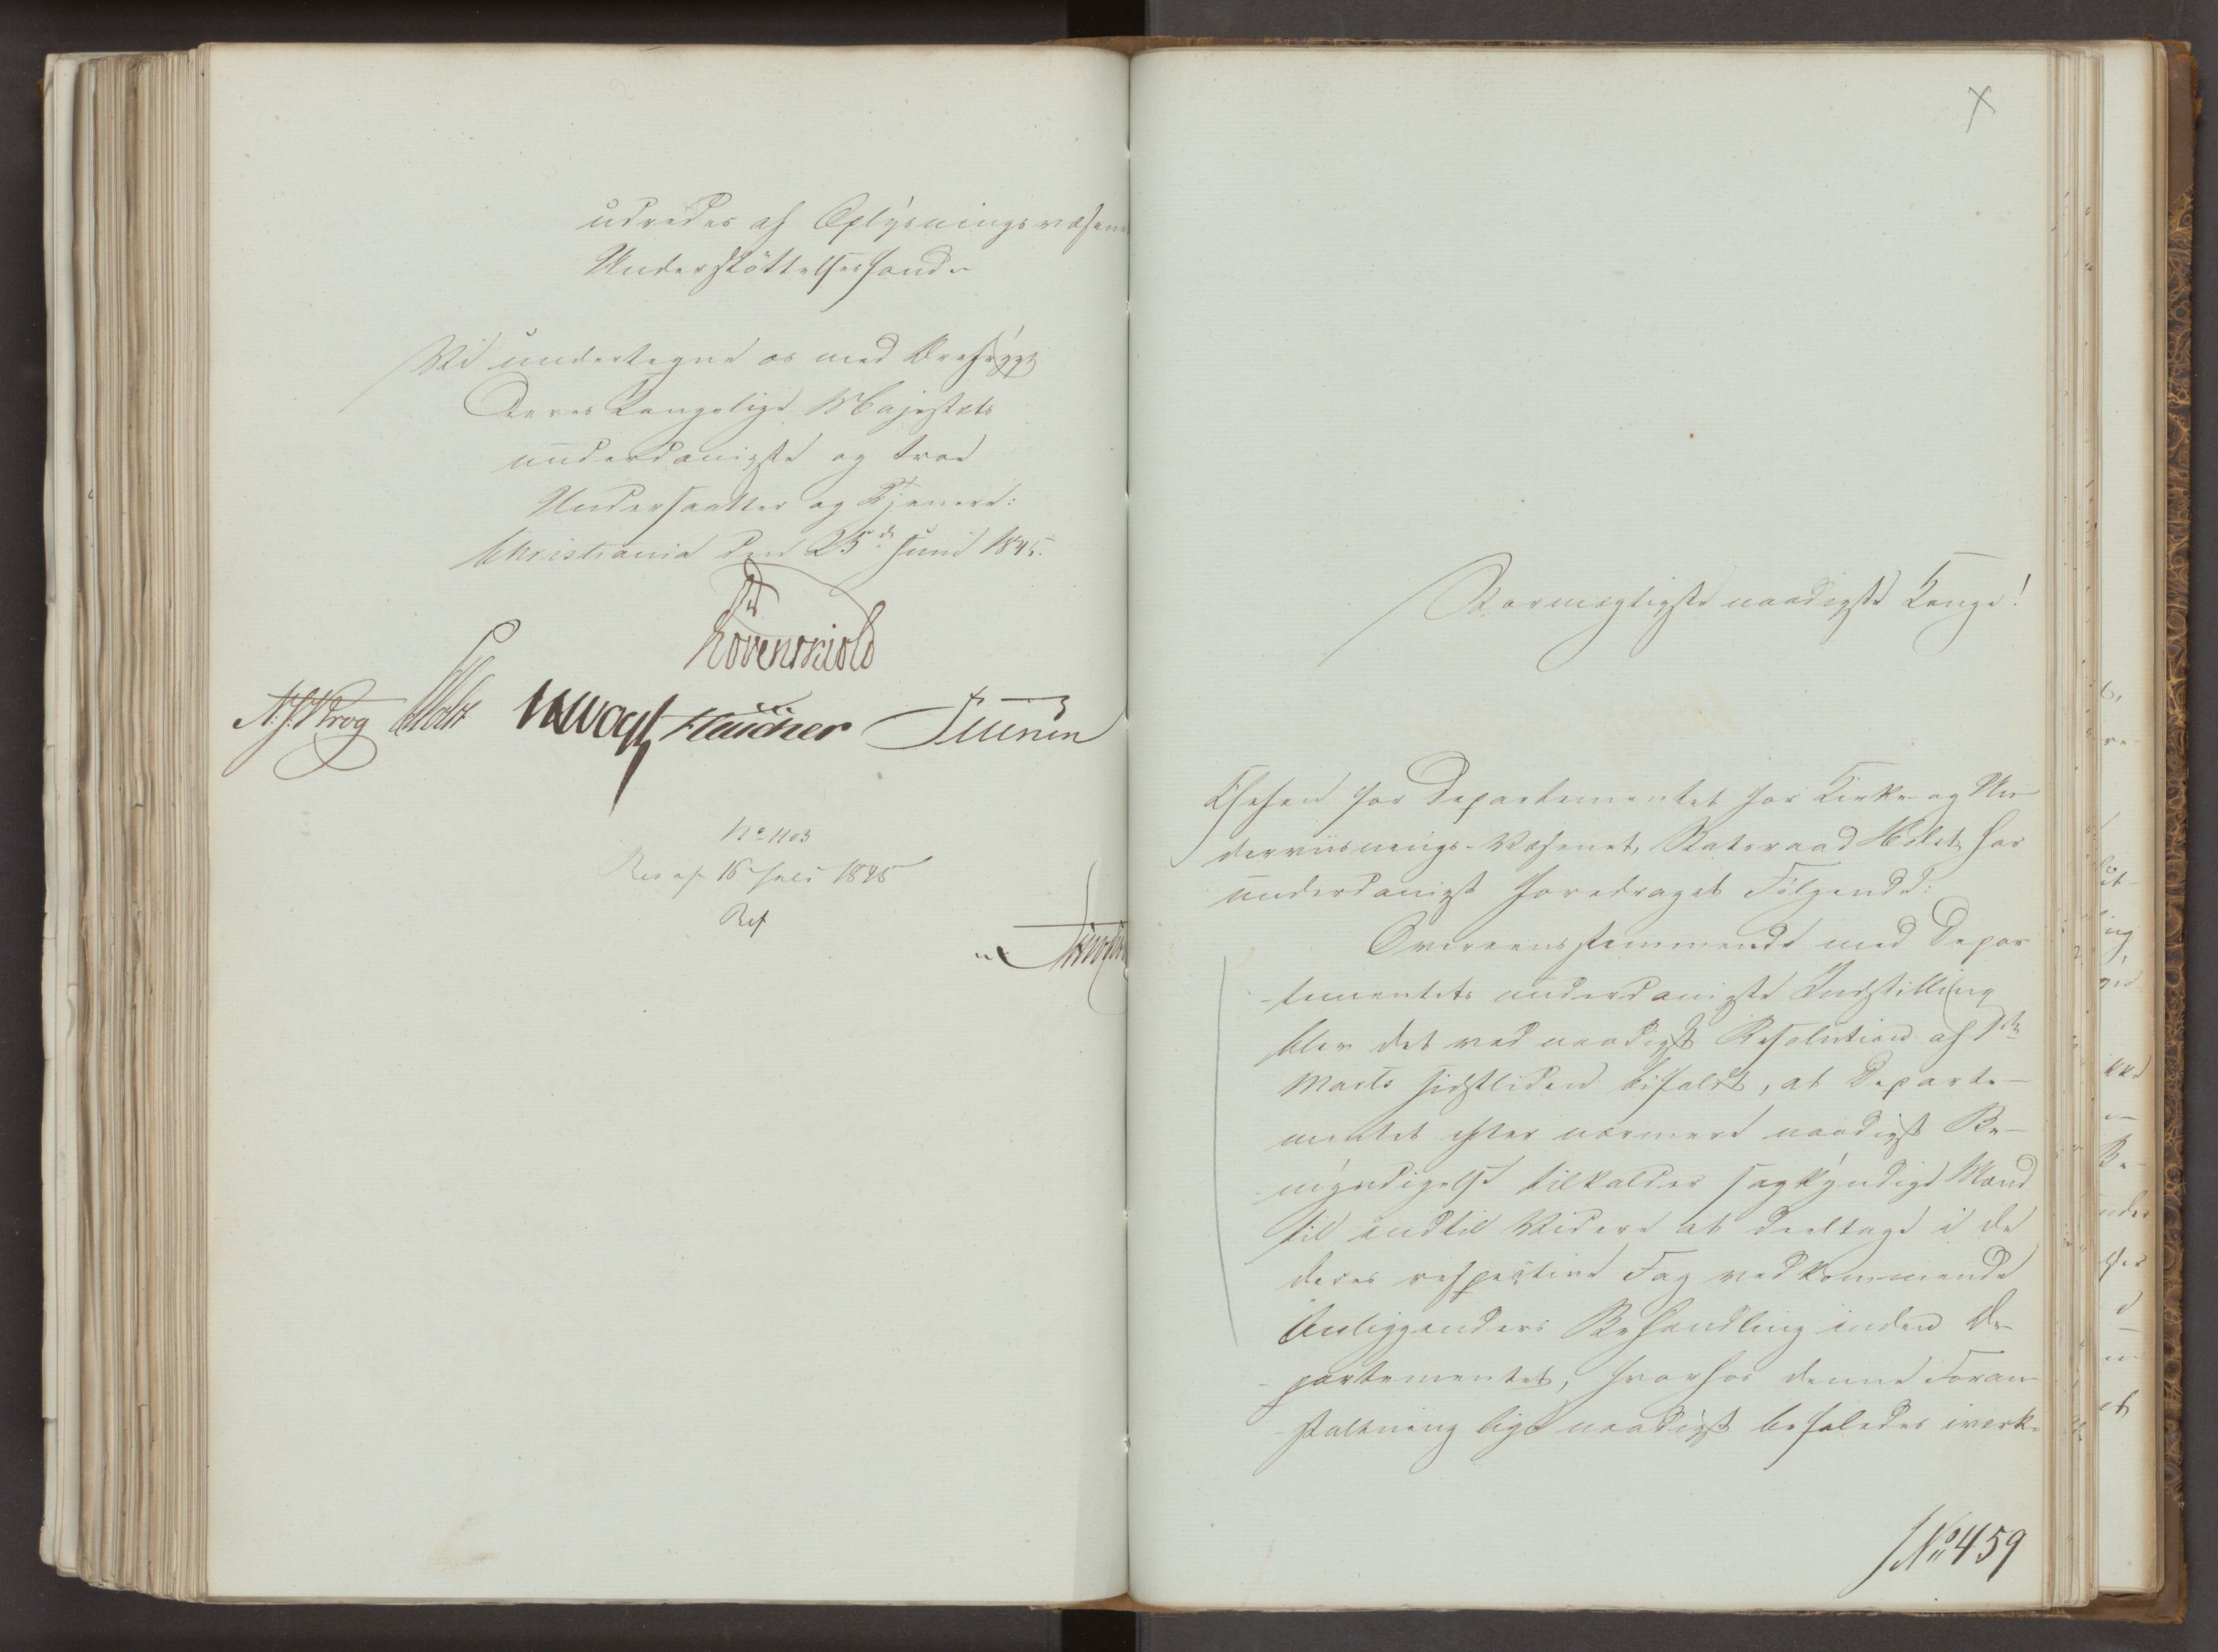 udredes af Oplysningsvæsenets
Understøttelsesfond.
Vi undertegne os med Ærefrygt
Deres Kongelige Majestæts
underdanigste og troe
Undersaatter og Tjenere:
Christiania den 25de Juni 1845.
Løvenskiold
N. J. Krog Holst JHVogt Flaücher
No 1103
Res af 16 Juli 1845
Ref
X
Stormægtigste naadigste Konge!
Chefen for Departementet for Kirke- og Un-
derviisnings-Væsenet, Statsraad Holst har
underdanigst foredraget Følgende:
Overeensstemmende med Depar
-tementets underdanigste Indstilling
blev det ved naadigst Resolution af 7de
Marts sidstleden bifaldt, at Departe-
mentet efter nærmere naadigst Be-
-myndigelse tilkalder sagkyndige Mænd
til indtil Videre at deeltage i de
deres respective Fag vedkommende
Anliggenders Behandling inden De-
-partementet, hvorhos denne Foran-
-staltning lige naadigst befaledes iværk-
No 459